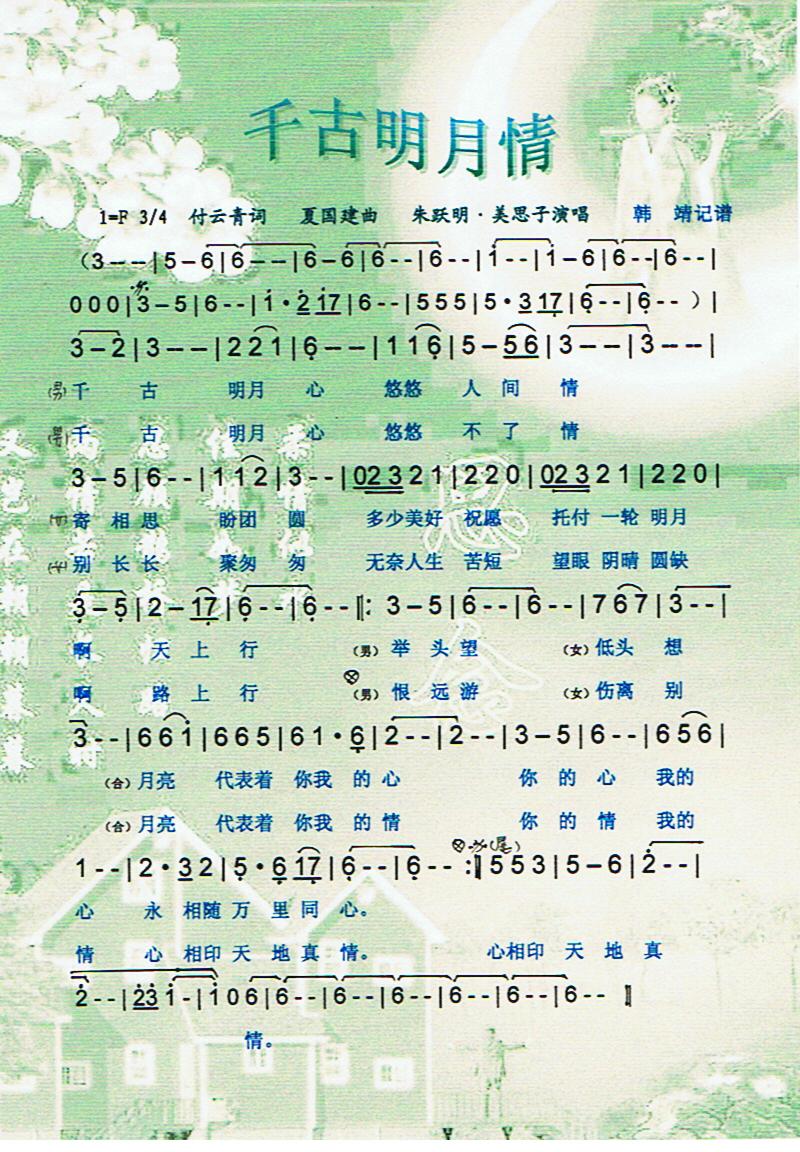 千古明月情
1=F 3/4 付云青词 夏国建曲 朱跃明·美思子演唱 韩 靖记谱
（3--|5-6|6--|6-6|6--|6--|1̇--|1̇-6|6--|6--|
000|3-5|6--|1̇·2̇1̇7|6--|555|5·317̣|6̣--|6̣--）|
3-2|3--|221|6̣--|116̣|5-56|3--|3--|
(男)千 古 明月 心 悠悠 人 间 情
千 古 明月 心 悠悠 不 了 情
3-5|6--|112|3--|02321|220|02321|220|
寄 相 思 盼团 圆 多少美好 祝愿 托付 一轮 明月
别 长 长 聚匆 匆 无奈人生 苦短 望眼 阴晴 圆缺
3̣-5̣|2-17̣|6̣--|6̣--‖:3-5|6--|6--|767|3--|
啊 天 上 行 （男）举 头 望 （女）低头 想
啊 路 上 行 （男）恨 远 游 （女）伤离 别
3--|661̇|665|61·6̣|2--|2--|3-5|6--|656|
（合）月亮 代表着 你我 的 心 你 的 心 我的
（合）月亮 代表着 你我 的 情 你 的 情 我的
1--|2·32|5̣·6̣17̣|6̣--|6̣--:‖553|5-6|2̇--|
心 永 相随 万 里 同 心。
情 心 相印 天 地 真 情。 心相印 天 地 真
2̇--|2̇3̇1̇-|1̇06|6--|6--|6--|6--|6--|6--‖
情。